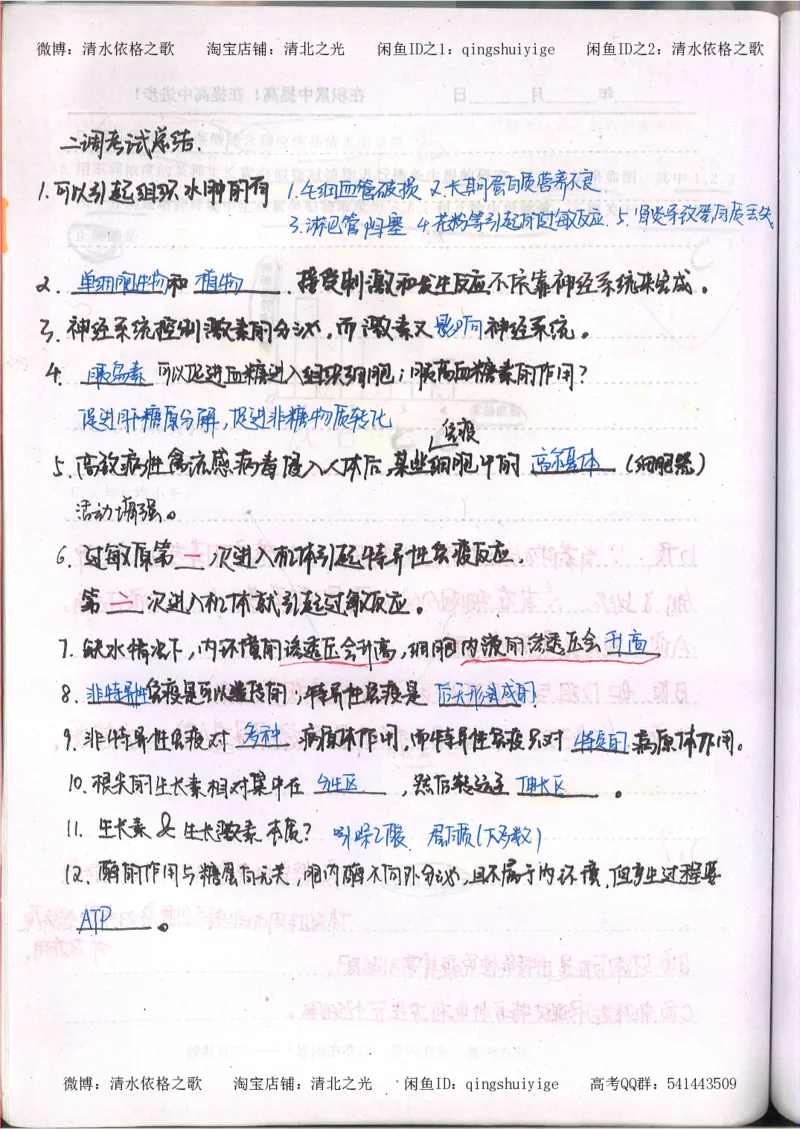 微博：清水依格之歌 淘宝店铺：清北之光 闲鱼ID之1：qingshuiyige 闲鱼ID之2：清水依格之歌
在积累中提高！在提高中进步！ 日 月 年
二调考试总结.
1.可以引起组织水肿的有 1.毛细血管破损 2.长期蛋白质营养不良.
3.淋巴管阻塞 4.花粉等引起的过敏反应. 5.肾炎导致蛋白质丢失
2. 单细胞生物和植物. 接受刺激和发生反应不依靠神经系统来完成。
3. 神经系统控制激素的分泌,而激素又影响神经系统。
4. 胰岛素 可以促进血糖进入组织细胞;胰高血糖素的作用?
促进肝糖原分解,促进非糖物质转化
免疫
5. 高致病性禽流感病毒侵入人体后,某些细胞中的 高尔基体 (细胞器)
活动增强。
6. 过敏原第一次进入机体引起特异性免疫反应.
第二次进入机体就引起过敏反应。
7. 缺水情况下,内环境的渗透压会升高,细胞内液的渗透压会升高
8. 非特异性免疫是可以遗传的;特异性免疫是 后天形成的.
9. 非特异性免疫对 多种 病原体作用,而特异性免疫只对 特定的 病原体作用。
10. 根尖的生长素相对集中在 分生区 ,然后转运至 伸长区 。
11. 生长素 & 生长激素 本质? 吲哚乙酸 蛋白质(大多数)
12. 酶的作用与糖蛋白无关,胞内酶不向外分泌,且不属于内环境,但产生过程要
ATP 。
微博：清水依格之歌 淘宝店铺：清北之光 闲鱼ID：qingshuiyige 高考QQ群：541443509